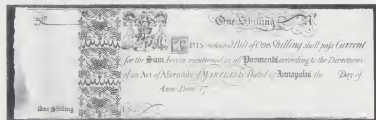 No
One Shilling
No
THIS indented Bill of One Shilling shall pass Current
for the Sum herein mentioned in all Payments according to the Directions
of an Act of Assembly of MARYLAND Dated in Annapolis the Day of
Anno Dom: 17
One Shilling